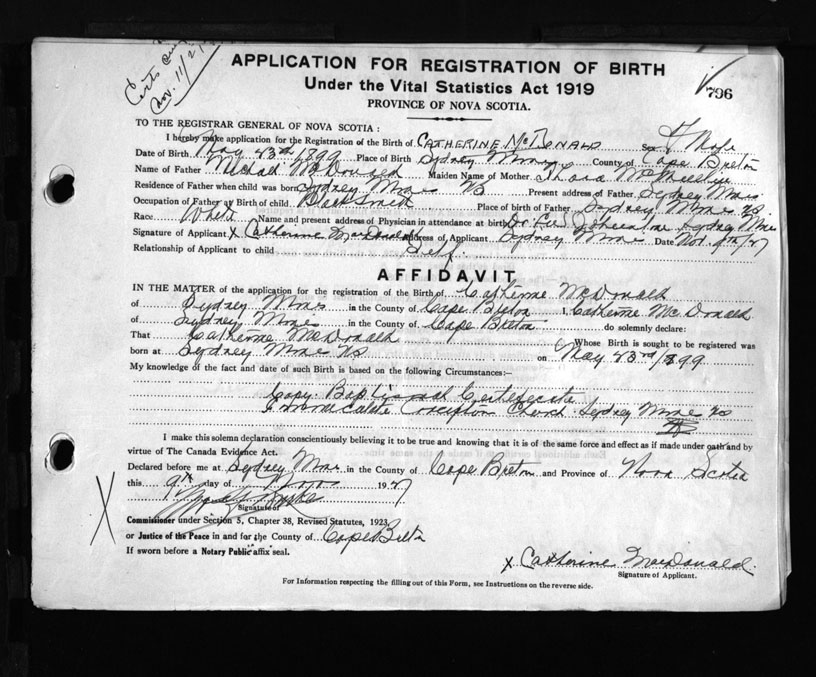 Nov. 11/27
APPLICATION FOR REGISTRATION OF BIRTH
Under the Vital Statistics Act 1919
796
PROVINCE OF NOVA SCOTIA.
TO THE REGISTRAR GENERAL OF NOVA SCOTIA:
I hereby make application for the Registration of the Birth of CATHERINE McDONALD Sex
Date of Birth May 23rd 1899 Place of Birth Sydney Mines County of Cape Breton
Name of Father Michael McDonald Maiden Name of Mother
Residence of Father when child was born Sydney Mines NS Present address of Father Sydney Mines
Occupation of Father at Birth of child Blacksmith Place of birth of Father Sydney Mines NS
Race White Name and present address of Physician in attendance at birth Dr. Sydney Mines
Signature of Applicant X Catherine MacDonald Address of Applicant Sydney Mines Date Nov. 9th/27
Relationship of Applicant to child Self.
AFFIDAVIT
IN THE MATTER of the application for the registration of the Birth of Catherine McDonald
of Sydney Mines in the County of Cape Breton I, Catherine McDonald
of Sydney Mines in the County of Cape Breton do solemnly declare:
That Catherine McDonald Whose Birth is sought to be registered was
born at Sydney Mines NS on May 23rd 1899
My knowledge of the fact and date of such Birth is based on the following Circumstances:—
Copy Baptismal Certificate
Immaculate Conception Church Sydney Mines NS
I make this solemn declaration conscientiously believing it to be true and knowing that it is of the same force and effect as if made under oath and by
virtue of The Canada Evidence Act.
Declared before me at Sydney Mines in the County of Cape Breton and Province of Nova Scotia
this 9th day of Nov 1927
Signature of
Commissioner under Section 5, Chapter 38, Revised Statutes, 1923,
or Justice of the Peace in and for the County of Cape Breton
If sworn before a Notary Public affix seal.
X Catherine MacDonald
Signature of Applicant.
For Information respecting the filling out of this Form, see Instructions on the reverse side.